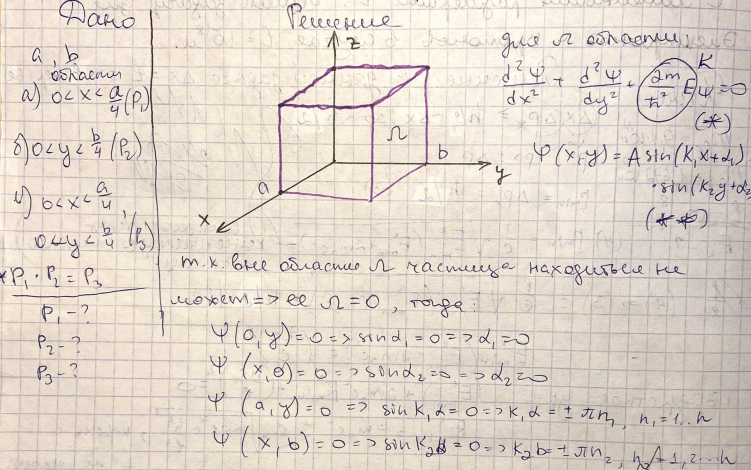 Дано
a, b
области
а) 0<x<a/4 (P₁)
б) 0<y<b/4 (P₂)
в) 0<x<a/4,
0<y<b/4 (P₃)
*P₁·P₂=P₃
P₁-?
P₂-?
P₃-?
Решение
z
Ω
a
b
y
x
для Ω области:
K
d²Ψ/dx² + d²Ψ/dy² + 2m/ħ² EΨ=0
(*)
Ψ(x,y)=A sin(K₁x+α₁)
·sin(K₂y+α₂
(**)
т.к. вне области Ω частица находиться не
может => ее Ω=0, тогда:
Ψ(0,y)=0=>sinα₁=0=>α₁=0
Ψ(x,0)=0=>sinα₂=0=>α₂=0
Ψ(a,y)=0 => sinK₁a=0=>K₁a=±πn₁, n₁=1..n
Ψ(x,b)=0=>sinK₂b=0=>K₂b=±πn₂, n₂=1,2...n